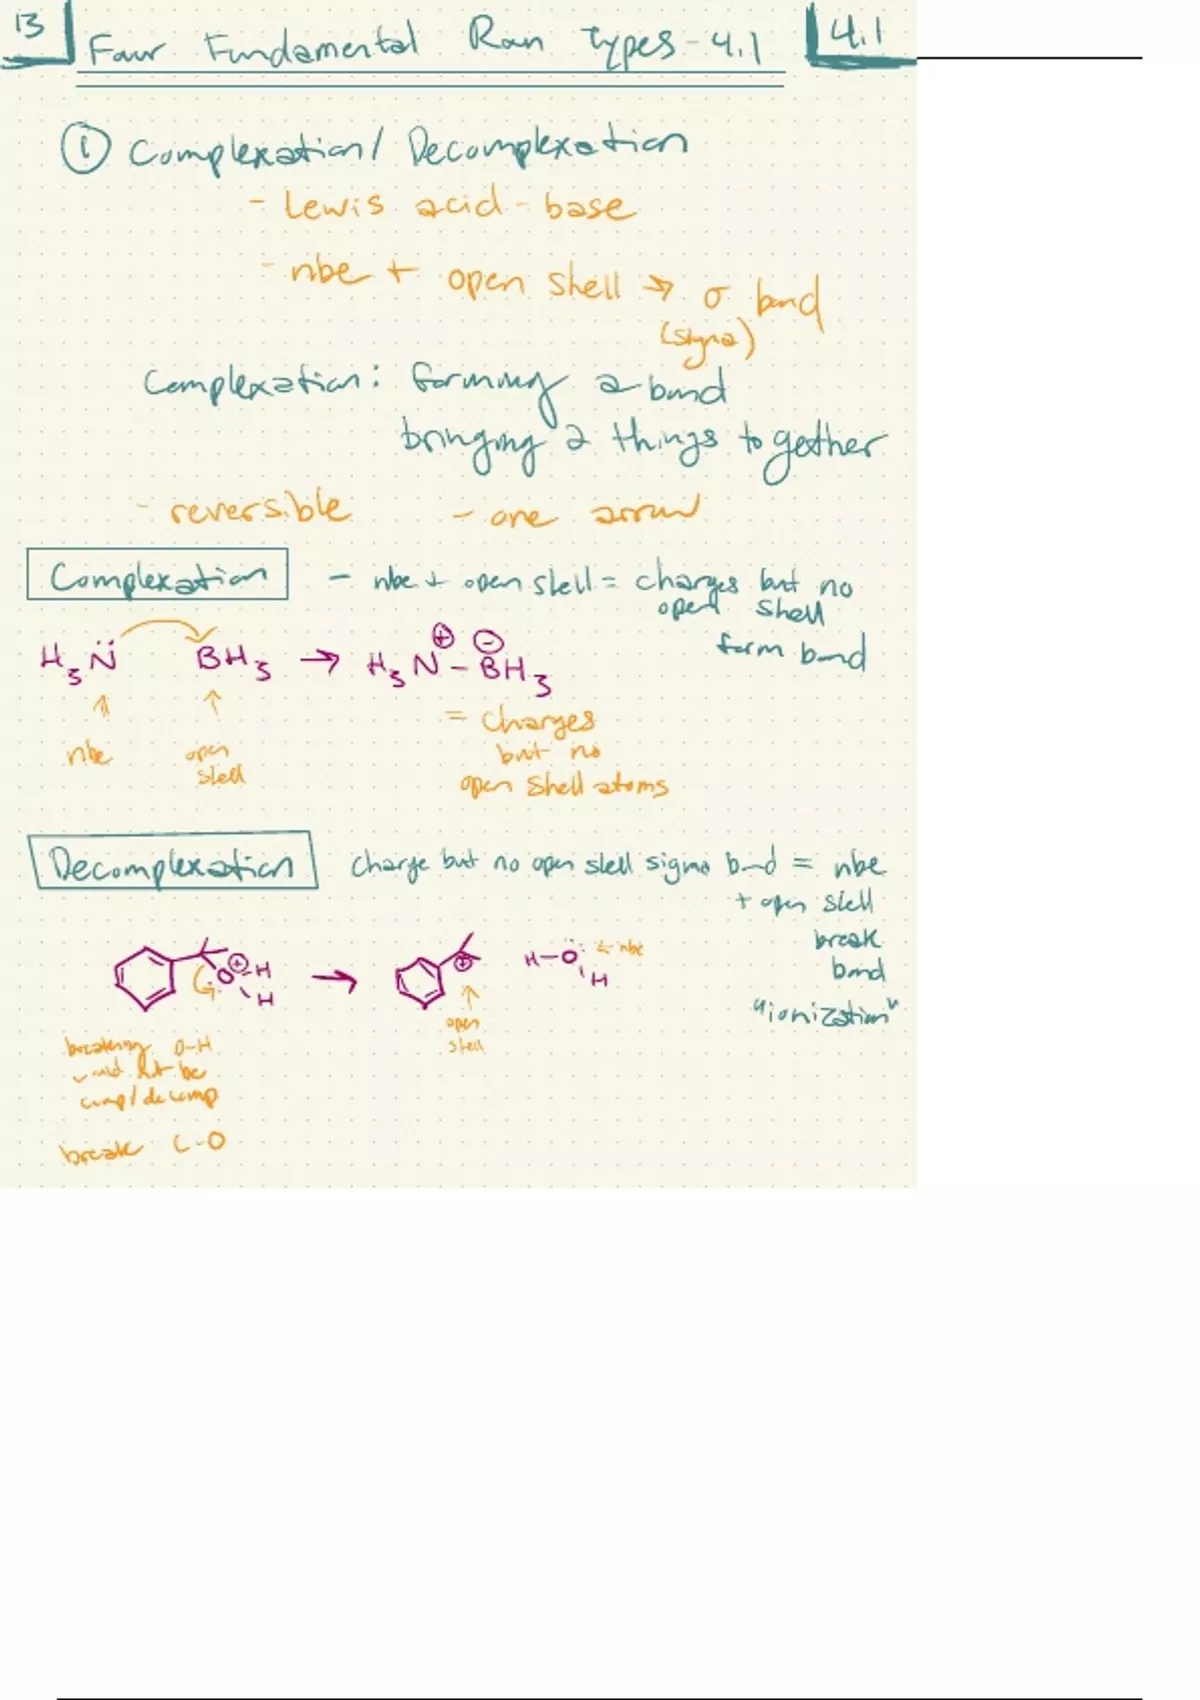 13
Four Fundamental Rxn Types - 4.1
4.1
① Complexation/ Decomplexation
- Lewis acid - base
- nbe + open shell → σ bond
(sigma)
Complexation: forming a bond
bringing 2 things together
- reversible - one arrow
Complexation - nbe + open shell = charges but no
open shell
form bond
H₃N̈ BH₃ → H₃N - BH₃
⊕ ⊖
nbe open
shell
= charges
but no
open shell atoms
Decomplexation charge but no open shell sigma bond = nbe
+ open shell
break
bond
"ionization"
O ⊕ - H
H
→
⊕
H-O: ← nbe
H
open
shell
breaking O-H
would not be
comp/decomp
break C-O